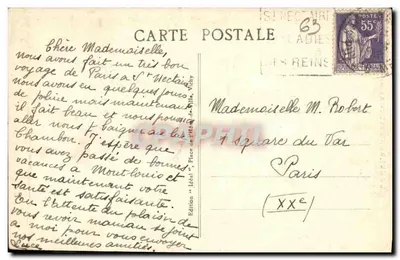 CARTE POSTALE
Chère Mademoiselle,
nous avons fait un très bon
voyage de Paris à St Nectaire
nous avons eu quelques jours
de pluie mais maintenant
il fait beau et nous pouvons
aller nous baigner au lac
Chambon. J'espère que
vous avez passé de bonnes
vacances à Montlouis et
que maintenant votre
santé est satisfaisante.
En l'attente du plaisir de
vous revoir maman se joint
à moi pour vous envoyer
nos meilleures amitiés.
Edition "Idéal"
ST NECTAIRE
63
REINS
POSTES
55c
Mademoiselle M. Robert
1 square du Var
Paris
(XXe)